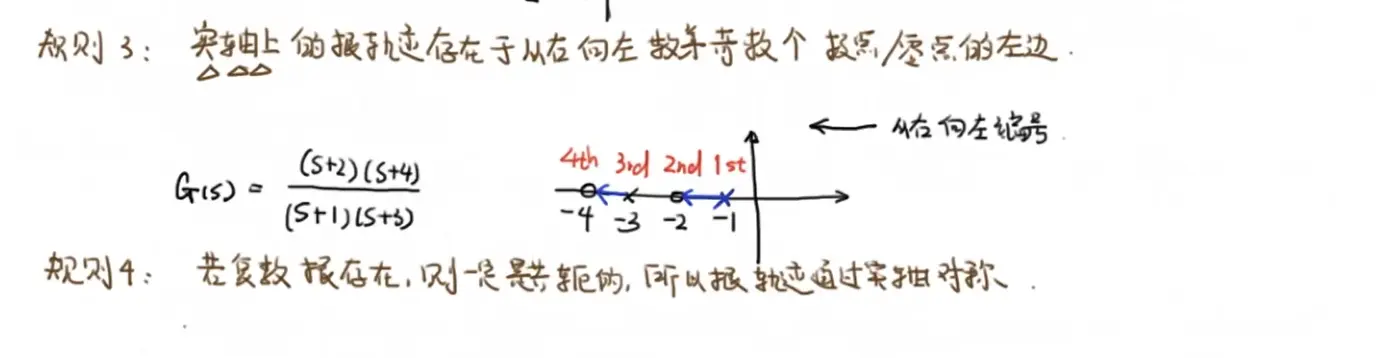 规则3: 实轴上的根轨迹存在于从右向左数第奇数个极点/零点的左边.
← 从右向左编号
4th 3rd 2nd 1st
G(s) = (S+2)(S+4) / (S+1)(S+3)
-4 -3 -2 -1
规则4: 若复数根存在,则一定是共轭的,所以根轨迹通过实轴对称.